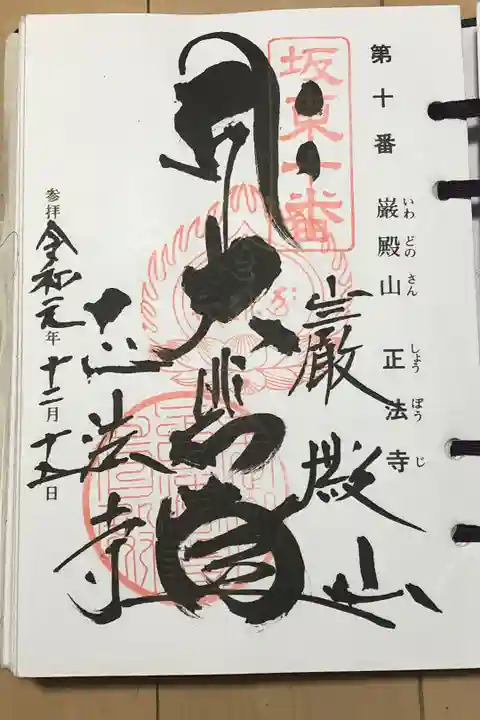 第十番 巌殿山 正法寺
いわ どの さん しょう ぼう じ
坂東十番
巌殿山
大悲閣
正法寺
参拝 令和元年 十二月 十五日